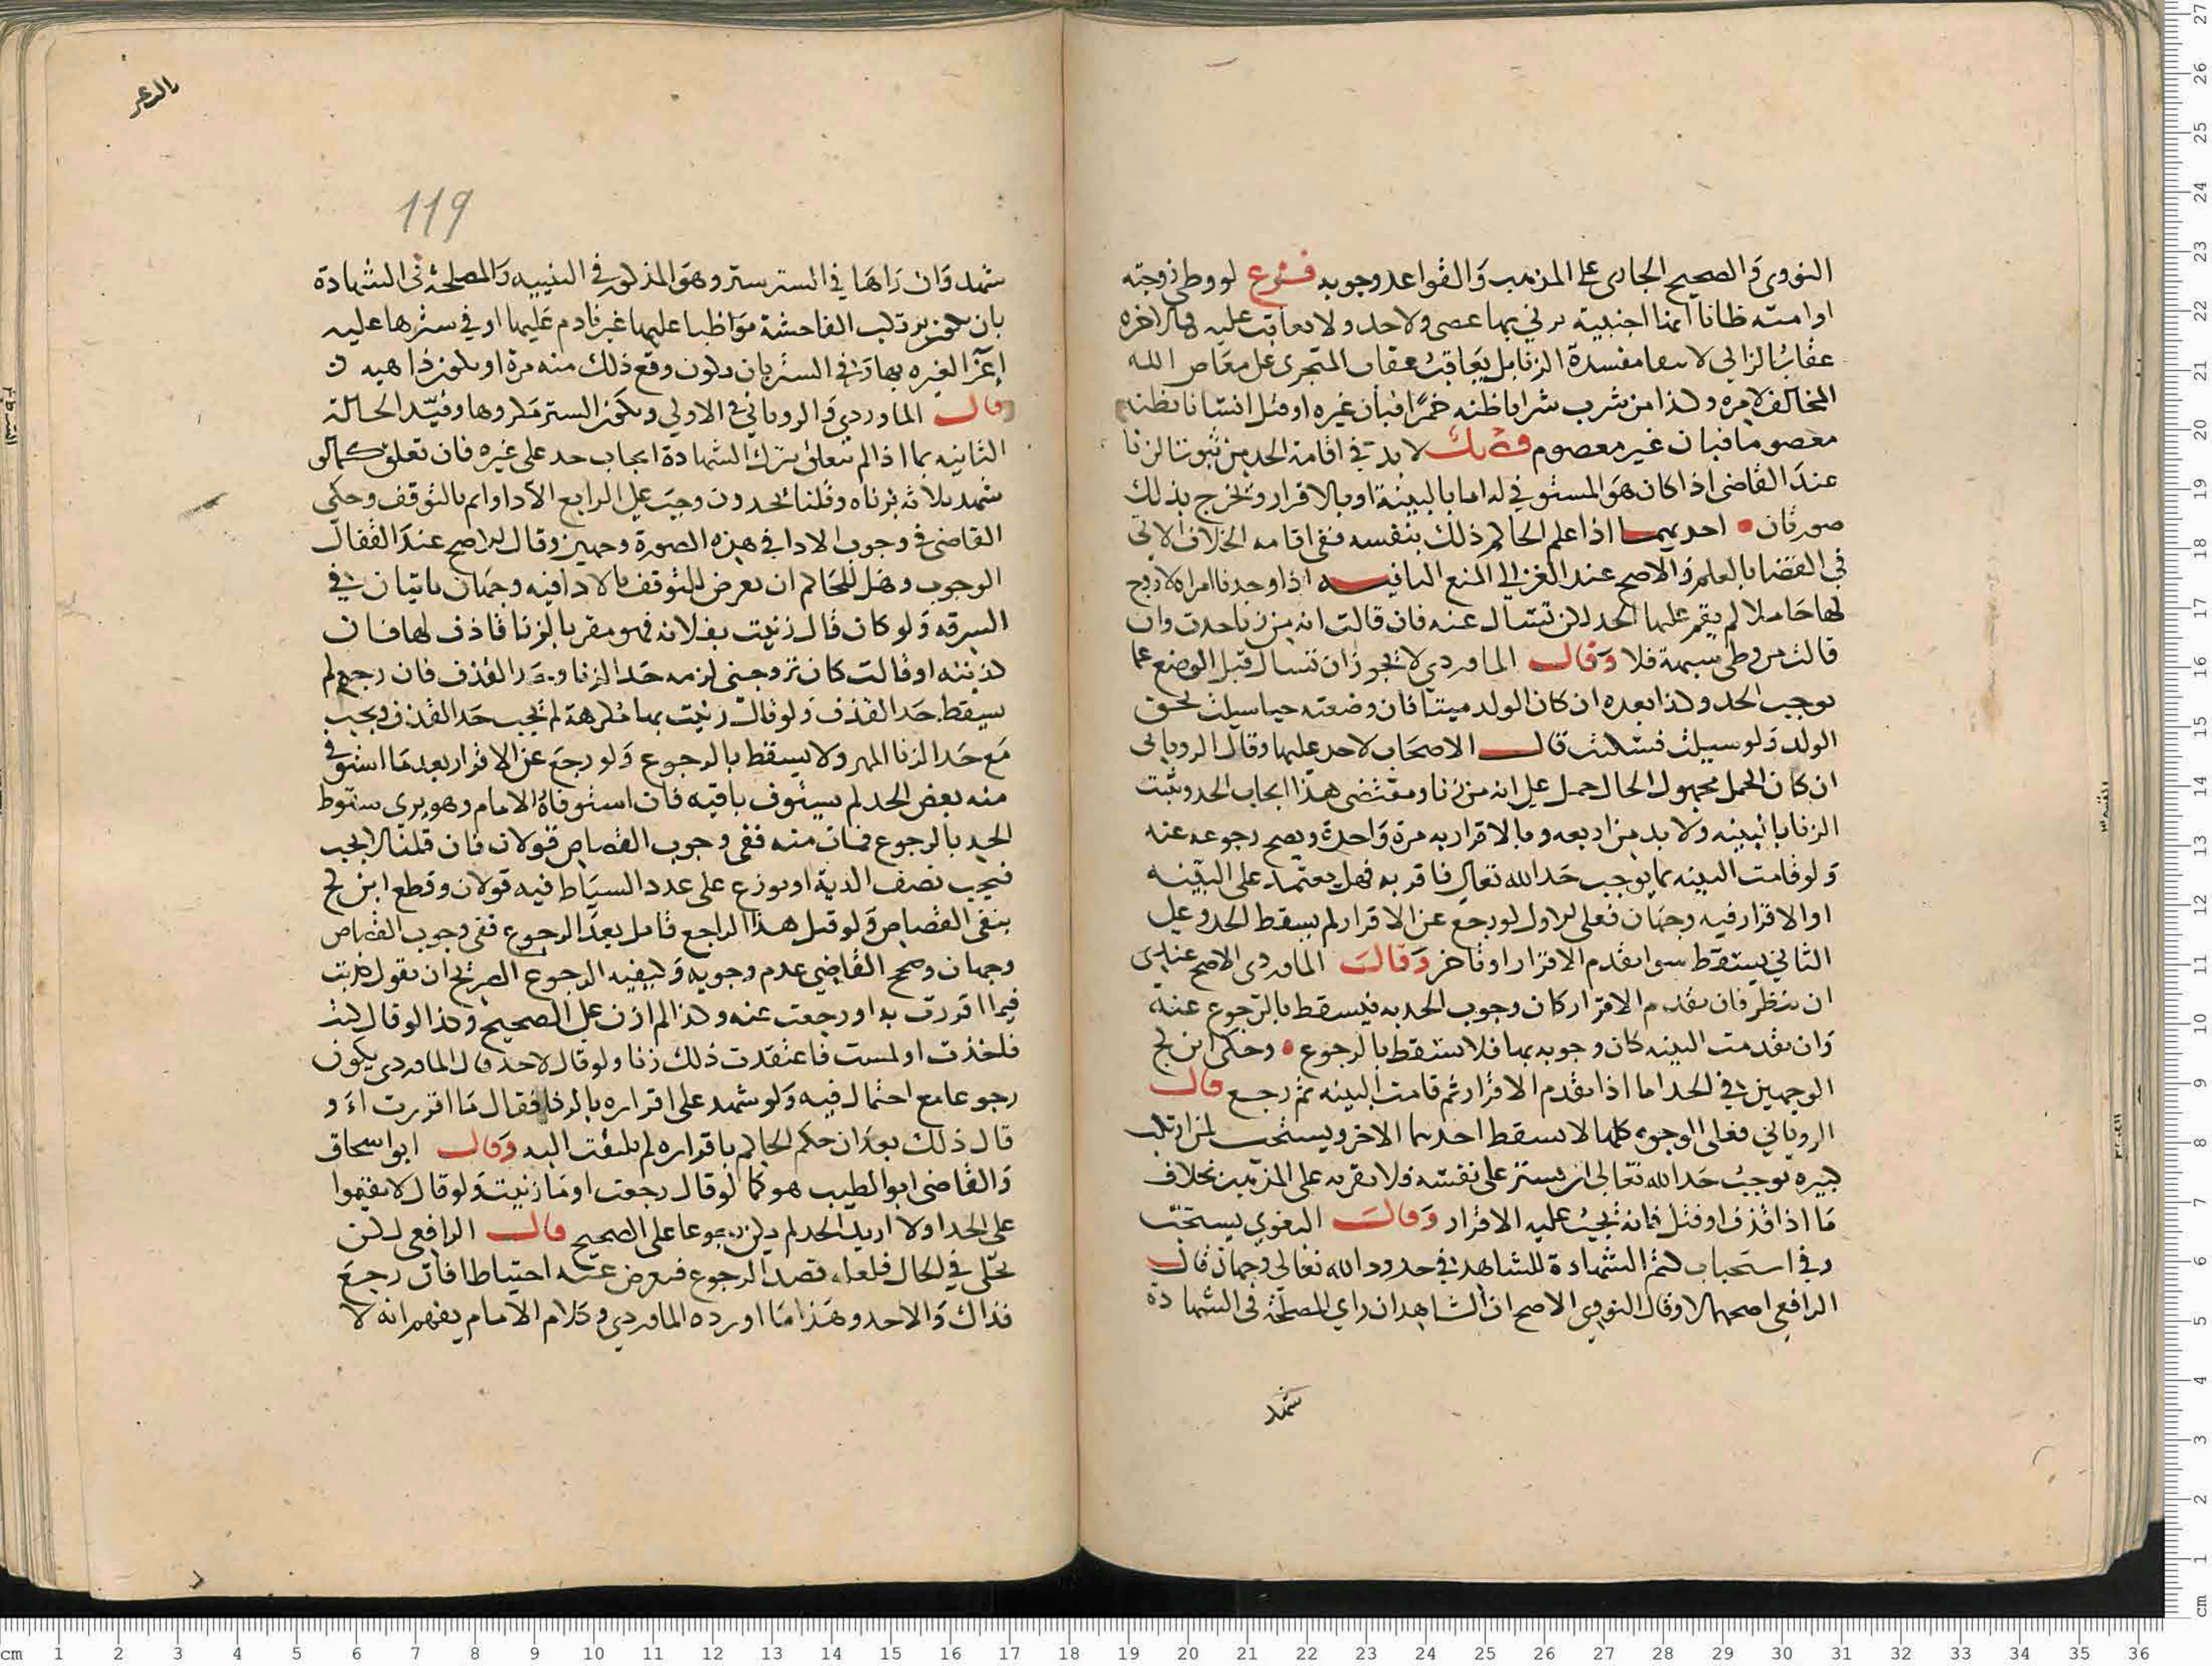 النووى والصحيح الجارى على المذهب والقواعد وجوبه فرع لو وطى زوجته
او امته ظانا انها اجنبية يزنى بها عصى ولا حد ولا يعاقب عليه فى الاخره
عقاب الزانى لانتفا مفسدة الزنا بل يعاقب عقاب المتجرى على معاصى الله
المخالف لامره وكذا من شرب شرابا ظنه خمرا فبان غيره او قتل انسانا يظنه
معصوما فبان غير معصوم لا بد فى اقامة الحد من ثبوت الزنا
عند القاضى اذا كان هو المستوفى له اما بالبينة او بالاقرار وتخرج بذلك
صورتان احديهما اذا علم الحاكم ذلك بنفسه ففى اقامه الخلاف الاتى
فى القضا بالعلم والاصح عند الغزالى المنع الثانيه اذا وجدنا امراه لا زوج
لها حاملا لم يقم عليها الحد لكن تسال عنه فان قالت انه من زنا حدت وان
قالت من وطى شبهة فلا وقال الماوردي لا يجوز ان تسال قبل الوضع عما
يوجب الحد وكذا بعده ان كان الولد ميتا فان وضعته حيا سيلت لحق
الولد ولو سيلت فسكتت قال الاصحاب لا حد عليها وقال الرويانى
ان كان الحمل مجهول الحال حمل على انه من زنا ومقتضى هذا ايجاب الحد ويثبت
الزنا بالبينه ولا بد من اربعه وبالاقرار به مرة واحدة ويصح رجوعه عنه
ولو قامت البينه بما يوجب حد الله تعالى فاقر به فهل يعتمد على البينه
او الاقرار فيه وجهان فعلى الاول لو رجع عن الاقرار لم يسقط الحد وعلى
الثاني يسقط سوا تقدم الاقرار او تاخر وقال الماوردى الاصح عندى
ان ينظر فان تقدم الاقرار كان وجوب الحد به فيسقط بالرجوع عنه
وان تقدمت البينه كان وجوبه بها فلا يسقط بالرجوع وحكى ابن كج
الوجهين فى الحد اما اذا تقدم الاقرار ثم قامت البينه ثم رجع قال
الرويانى فعلى الوجوه كلها لا يسقط احدهما الاخر ويستحب لمن ارتكب
كبيره توجب حد الله تعالى ان يستر على نفسه فلا يقر به على المذهب بخلاف
ما اذا قذف او قتل فانه يجب عليه الاقرار وقال البغوى يستحب
وفى استحباب كتم الشهادة للشاهد فى حدود الله تعالى وجهان قال
الرافعى اصحهما لا وقال النووى الاصح ان الشاهد ان راى المصلحة فى الشهادة
شهد
119
شهد وان راها فى الستر ستر وهو المذكور فى التنبيه والمصلحة فى الشهادة
بان يكون مرتكب الفاحشة مواظبا عليها غير نادم عليها او فى سترها عليه
اغرا لغيره بها وفى الستر بان يكون وقع ذلك منه مرة او يكون ذا هيه
قال الماوردي والرويانى فى الاولى ويكون الستر مكروها وقيد الحالة
الثانيه بما اذا لم يتعلق بترك الشهادة ايجاب حد على غيره فان تعلق كما لو
شهد ثلاثه بزناه وقلنا يحدون وجب على الرابع الادا واثم بالتوقف وحكى
القاضى فى وجوب الادا فى هذه الصورة وجهين وقال الاصح عند القفال
الوجوب وهل للحاكم ان يعرض للتوقف بالادا فيه وجهان ياتيان فى
السرقه ولو كان قال زنيت بفلانه فهو مقر بالزنا قاذف لها فان
كذبته او قالت كان تزوجنى لزمه حد الزنا وحد القذف فان رجع لم
يسقط حد القذف ولو قال زنيت بها مكرهة لم يجب حد القذف ويجب
مع حد الزنا المهر ولا يسقط بالرجوع ولو رجع عن الاقرار بعد ما استوفى
منه بعض الحد لم يستوف باقيه فان استوفاه الامام وهو يرى سقوط
الحد بالرجوع فمات منه ففى وجوب القصاص قولان فان قلنا لا يجب
فيجب نصف الدية او يوزع على عدد السياط فيه قولان وقطع ابن كج
بنفى القصاص ولو قتل هذا الراجع قاتل بعد الرجوع ففى وجوب القصاص
وجهان وصحح القاضي عدم وجوبه وكيفيه الرجوع الصريح ان يقول كذبت
فيما اقررت به او رجعت عنه وكذا لم ازن على الصحيح وكذا لو قال كنت
فاخذت او لمست فاعتقدت ذلك زنا ولو قال لا حد قال الماوردي يكون
رجوعا مع احتمال فيه ولو شهد على اقراره بالزنا فقال ما اقررت او
قال ذلك بعد ان حكم الحاكم باقراره لم يلتفت اليه وقال ابو اسحاق
والقاضى ابو الطيب هو كما لو قال رجعت او ما زنيت ولو قال لا تقيموا
على الحد او لا اريد الحد لم يكن رجوعا على الصحيح قال الرافعى لكن
يخلى فى الحال فلعله قصد الرجوع فيعرض عنه احتياطا فان رجع
فذاك والا حد وهذا ما اورده الماوردي وكلام الامام يفهم انه لا